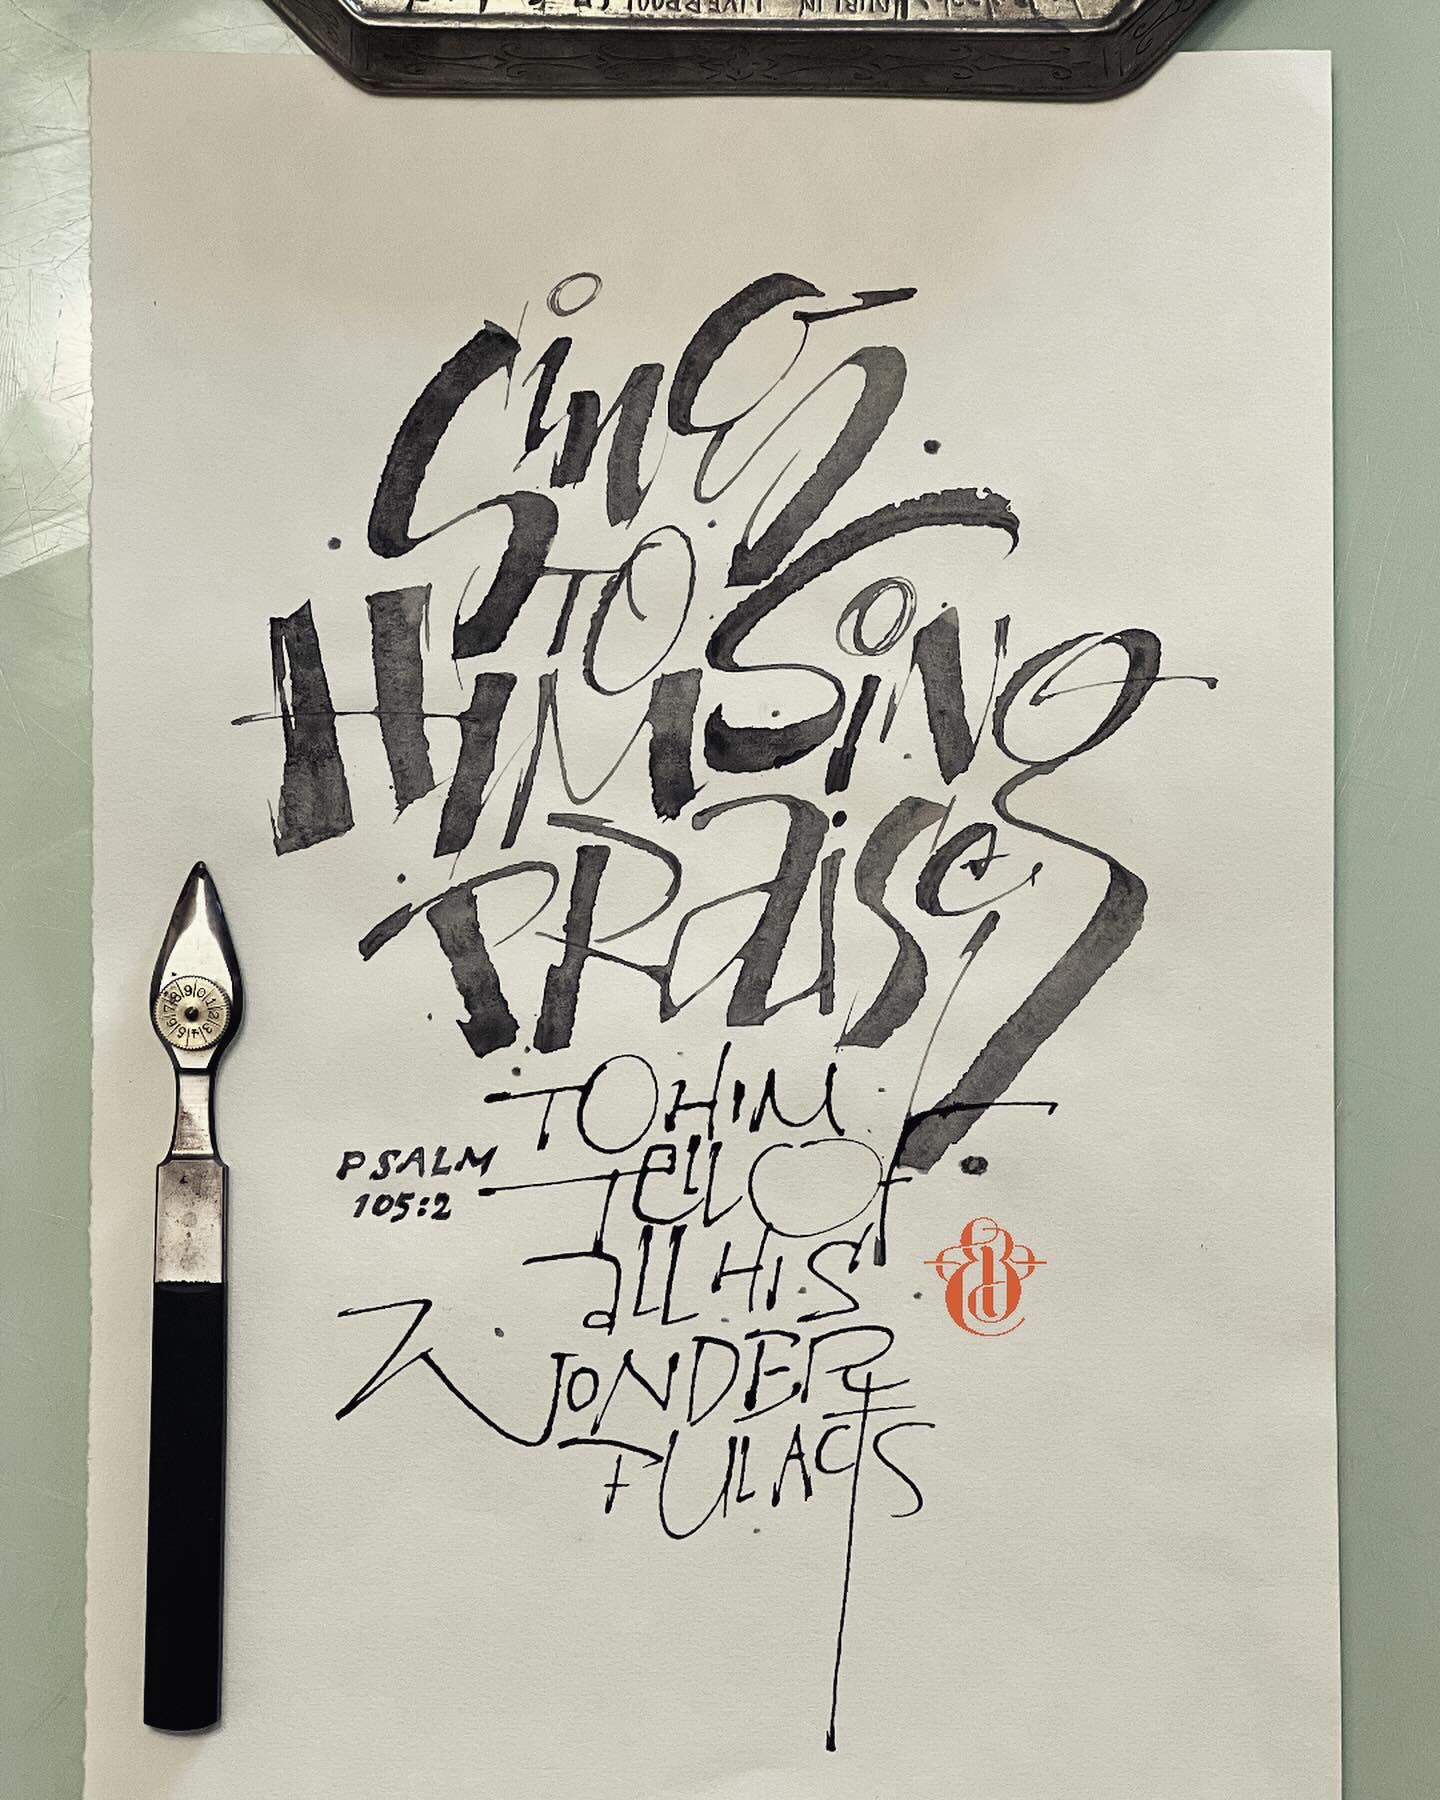 Sing
TO
HIM Sing
PRaise
TO HIM
Tell OF
all HIS
WONDER
FUL ACTS
PSALM
105:2